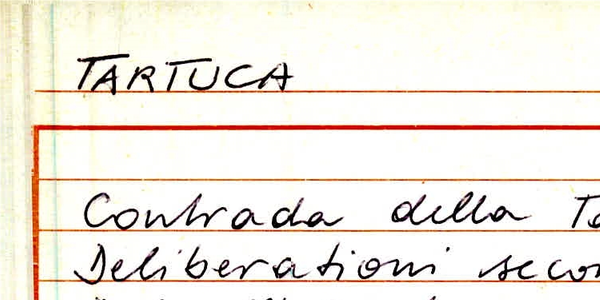 TARTUCA
Contrada della Ta
Deliberationi secon